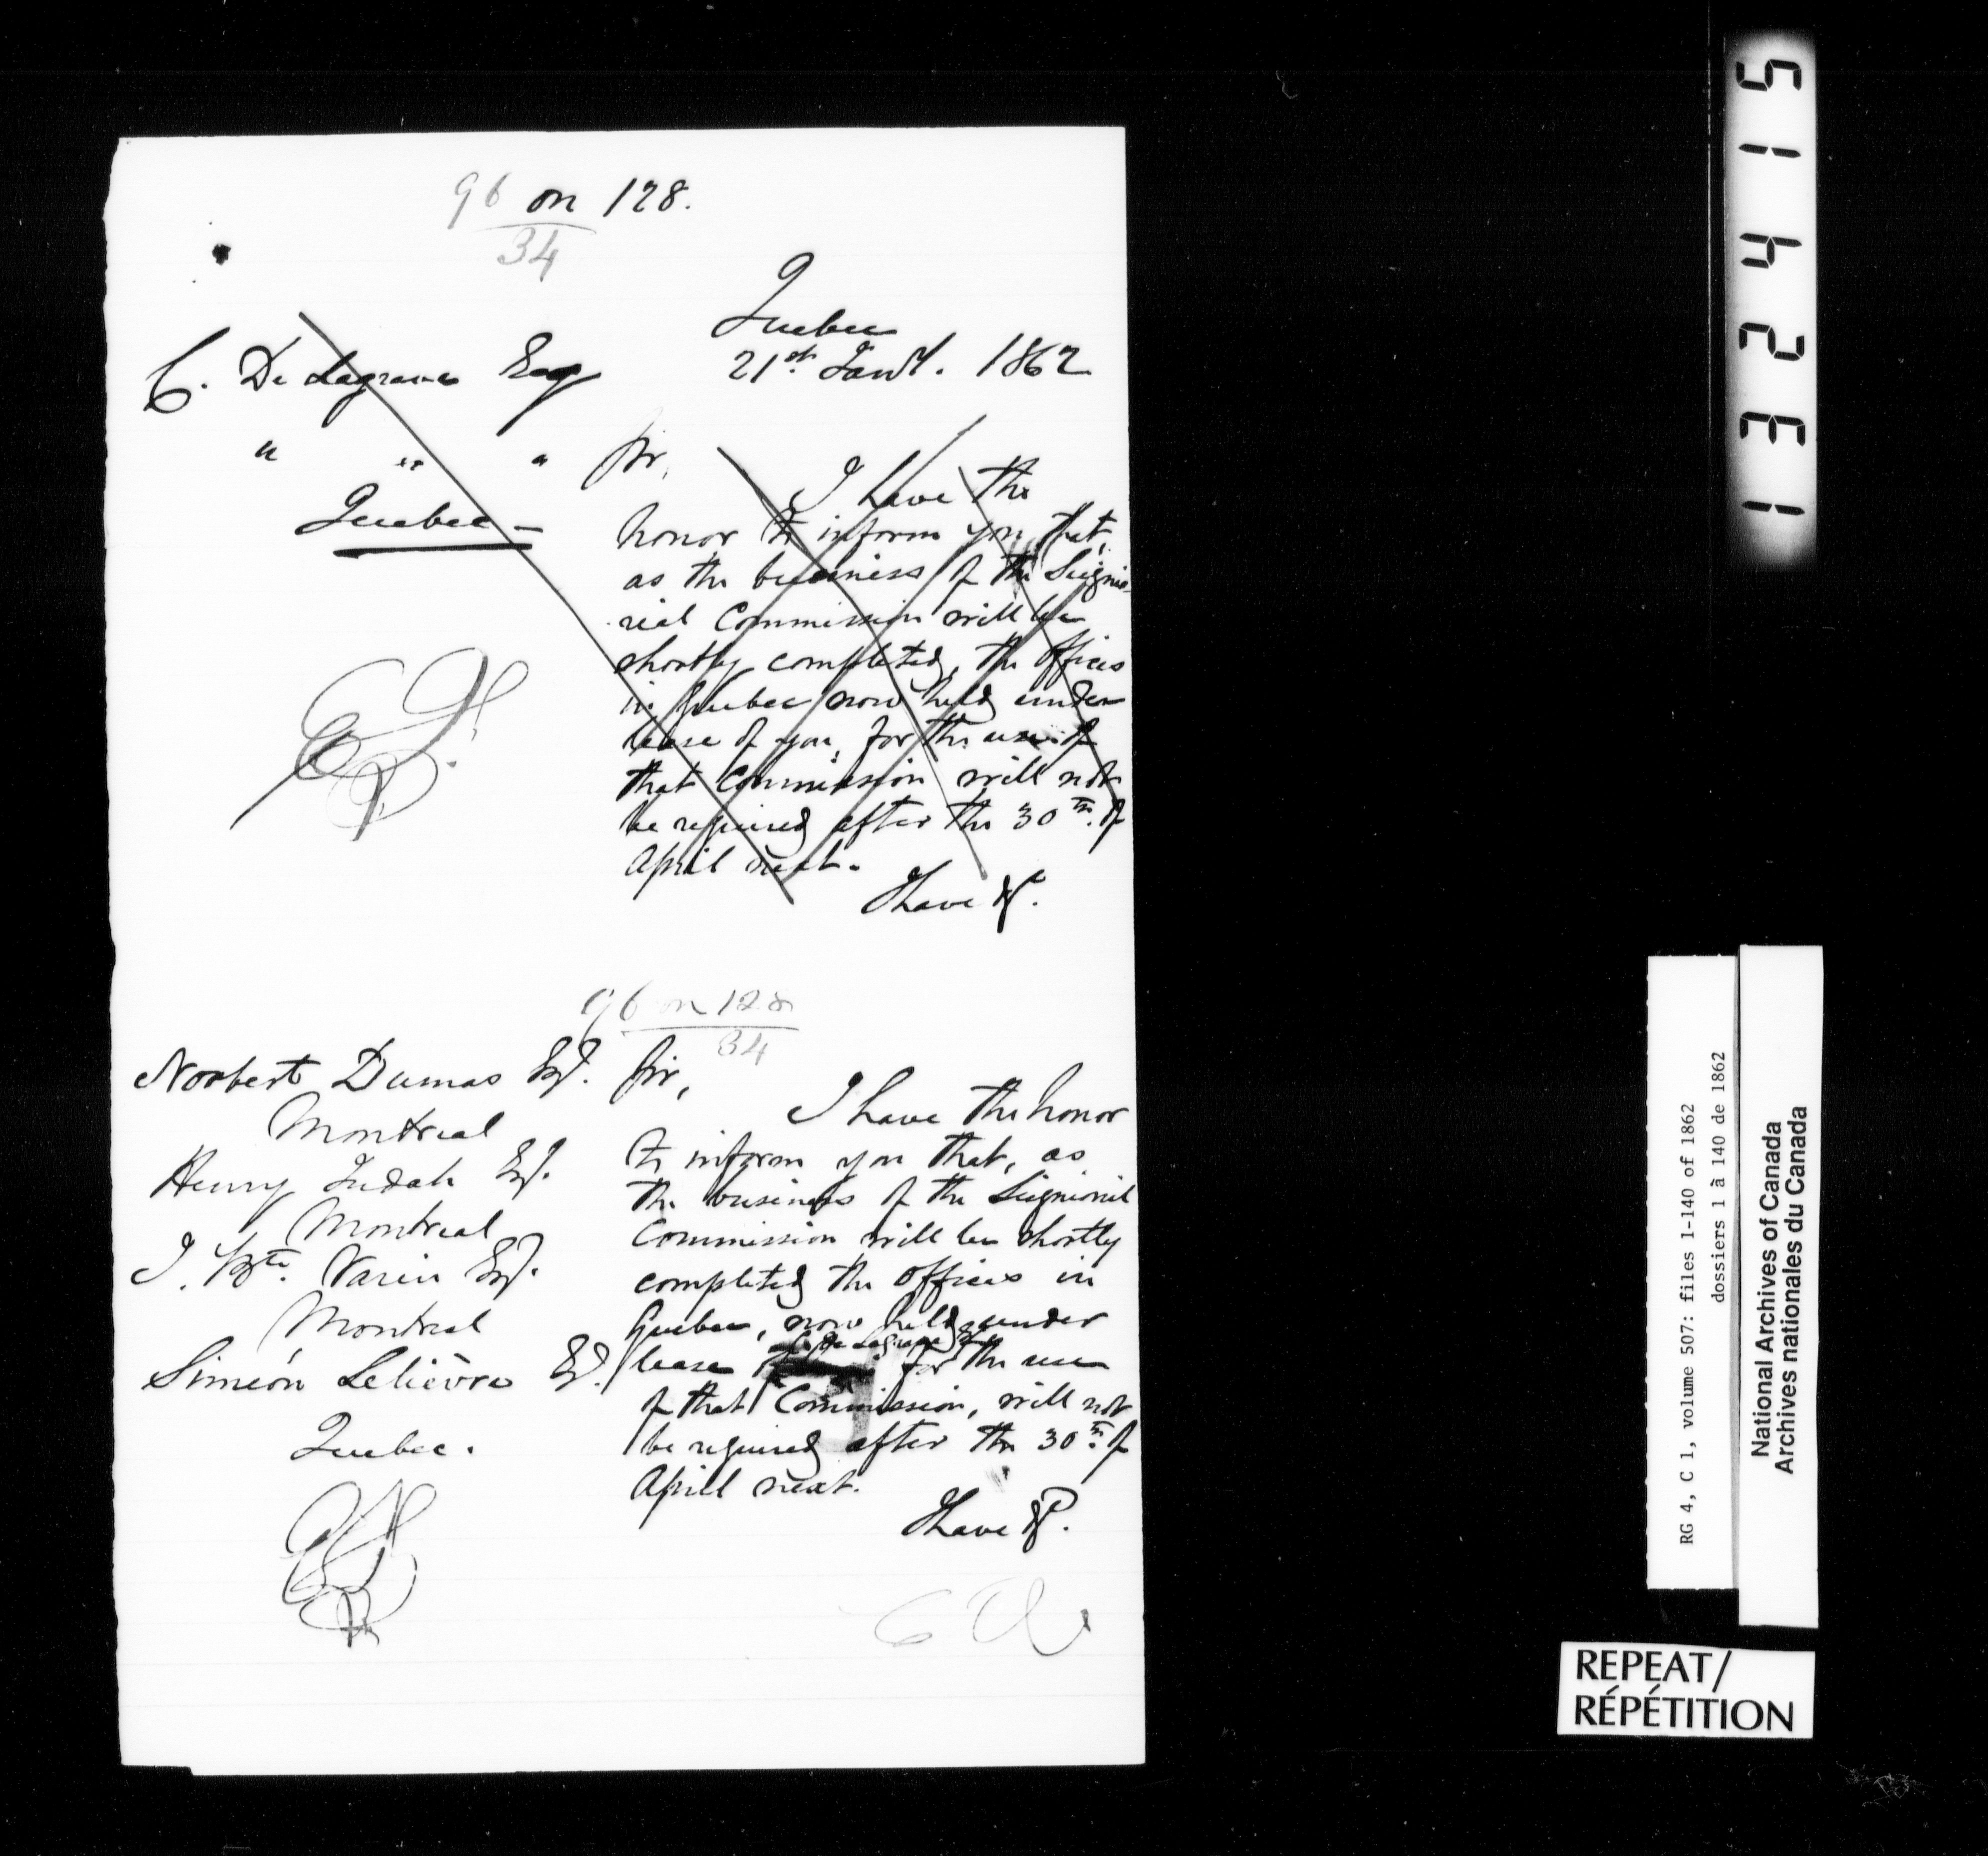 96 on 128.
34
Quebec
21st Jany. 1862
C. De Lagrave Esq
" " "
Quebec -
Sir,
I have the
honor to inform you that,
as the business of the Seignio-
rial Commission will be
shortly completed, the offices
in Quebec now held under
lease of you, for the use of
that Commission will not
be required after the 30th. of
April next.
I have &c.
96 on 128
34
Norbert Dumas Esq.
Montreal
Henry Judah Esq.
Montreal
J. Bte. Varin Esq.
Montreal
Siméon Lelièvre Esq.
Quebec.
Sir,
I have the honor
to inform you that, as
the business of the Seignioril
Commission will be shortly
completed the offices in
Quebec, now held under
lease of C. De Lagrave for the use
of that Commission, will not
be required after the 30th. of
April next.
I have &c.
132415
RG 4, C 1, volume 507: files 1-140 of 1862
dossiers 1 à 140 de 1862
National Archives of Canada
Archives nationales du Canada
REPEAT/
RÉPÉTITION